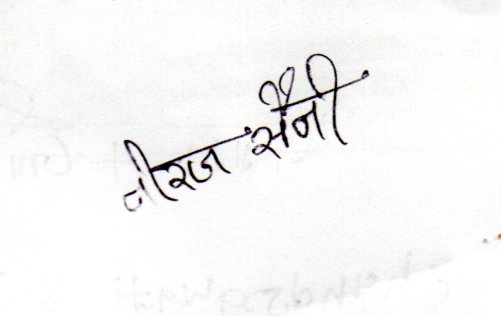 नीरज सैनी